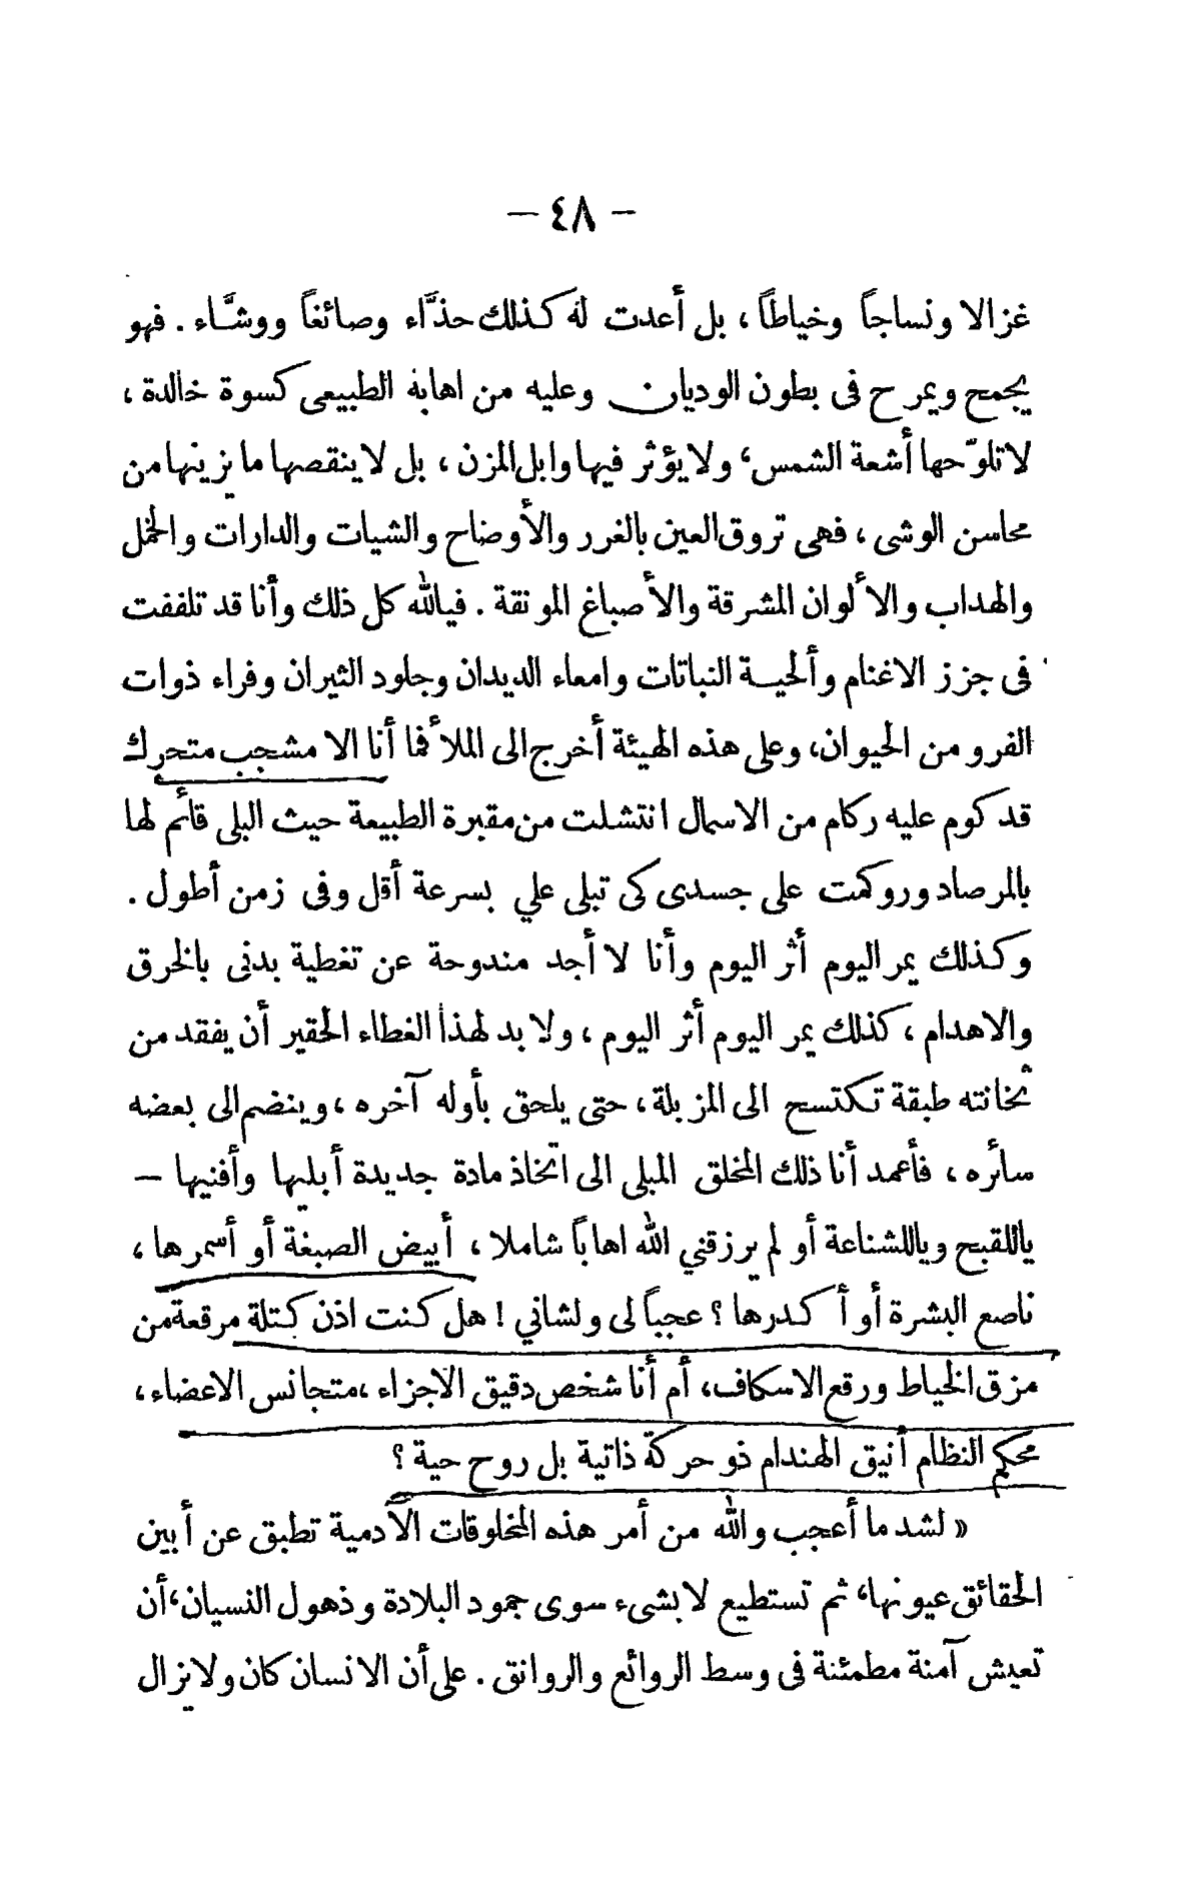 — ٤٨ —
غزالا ونساجاً وخياطاً ، بل أعدت له كذلك حذَّاء وصائغاً ووشَّاء . فهو
يجمح ويمرح فى بطون الوديان وعليه من اهابه الطبيعى كسوة خالدة ،
لا تلوّحها أشعة الشمس ، ولا يؤثر فيها وابل المزن ، بل لا ينقصها ما يزينها من
محاسن الوشى ، فهى تروق العين بالغرر والأوضاح والشيات والدارات والخمل
والهداب والألوان المشرقة والأصباغ المونقة . فيالله كل ذلك وأنا قد تلففت
فى جزز الاغنام وألحيـة النباتات وامعاء الديدان وجلود الثيران وفراء ذوات
الفرو من الحيوان ، وعلى هذه الهيئة أخرج الى الملأ فما أنا الا مشجب متحرك
قد كوم عليه ركام من الاسمال انتشلت من مقبرة الطبيعة حيث البلى قائم لها
بالمرصاد وروكمت على جسدى كى تبلى علي بسرعة أقل وفى زمن أطول .
وكذلك يمر اليوم أثر اليوم وأنا لا أجد مندوحة عن تغطية بدنى بالخرق
والاهدام ، كذلك يمر اليوم أثر اليوم ، ولا بد لهذا الغطاء الحقير أن يفقد من
ثخانته طبقة تكتسح الى المزبلة ، حتى يلحق بأوله آخره ، وينضم الى بعضه
سائره ، فأعمد أنا ذلك المخلق المبلى الى اتخاذ مادة جديدة أبليها وأفنيها —
ياللقبح وياللشناعة أو لم يرزقني الله اهاباً شاملا ، أبيض الصبغة أو أسمرها ،
ناصع البشرة أو أكدرها ؟ عجباً لى ولشاني ! هل كنت اذن كتلة مرقعة من
مزق الخياط ورقع الاسكاف ، أم أنا شخص دقيق الاجزاء ، متجانس الاعضاء ،
محكم النظام أنيق الهندام ذو حركة ذاتية بل روح حية ؟
« لشد ما أعجب والله من أمر هذه المخلوقات الآدمية تطبق عن أبين
الحقائق عيونها ، ثم تستطيع لا بشىء سوى جمود البلادة وذهول النسيان ، أن
تعيش آمنة مطمئنة فى وسط الروائع والروانق . على أن الانسان كان ولا يزال